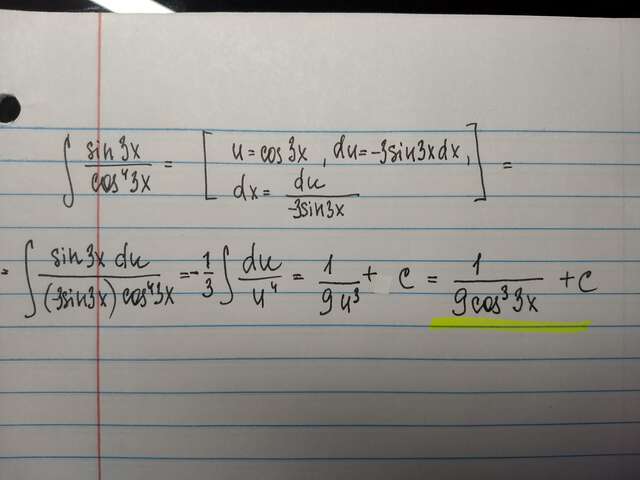 ∫ sin 3x / cos⁴ 3x = [ u = cos 3x , du = -3 sin 3x dx ,
dx = du / -3 sin 3x ] =
= ∫ sin 3x du / (-3 sin 3x) cos⁴ 3x = -1/3 ∫ du / u⁴ = 1 / 9u³ + C = 1 / 9 cos³ 3x + C